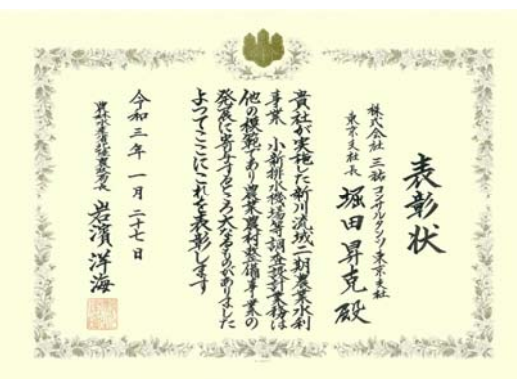 表彰状
株式会社 三祐コンサルタンツ 東京支社
東京支社長 堀田昇克 殿
貴社が実施した新川流域二期農業水利
事業 小新排水機場等調査設計業務は
他の模範であり農業農村整備事業の
発展に寄与するところ大なるものがありました
よってここにこれを表彰します
令和三年一月二十七日
農林水産省北陸農政局長 岩濱洋海